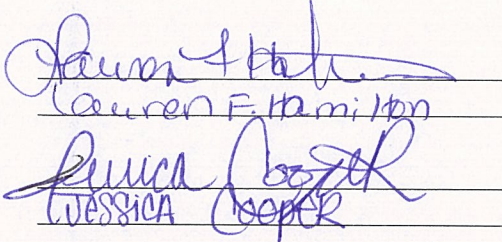 Lauren F Ham
Lauren F. Hamilton
Jessica Cooper
JESSICA COOPER